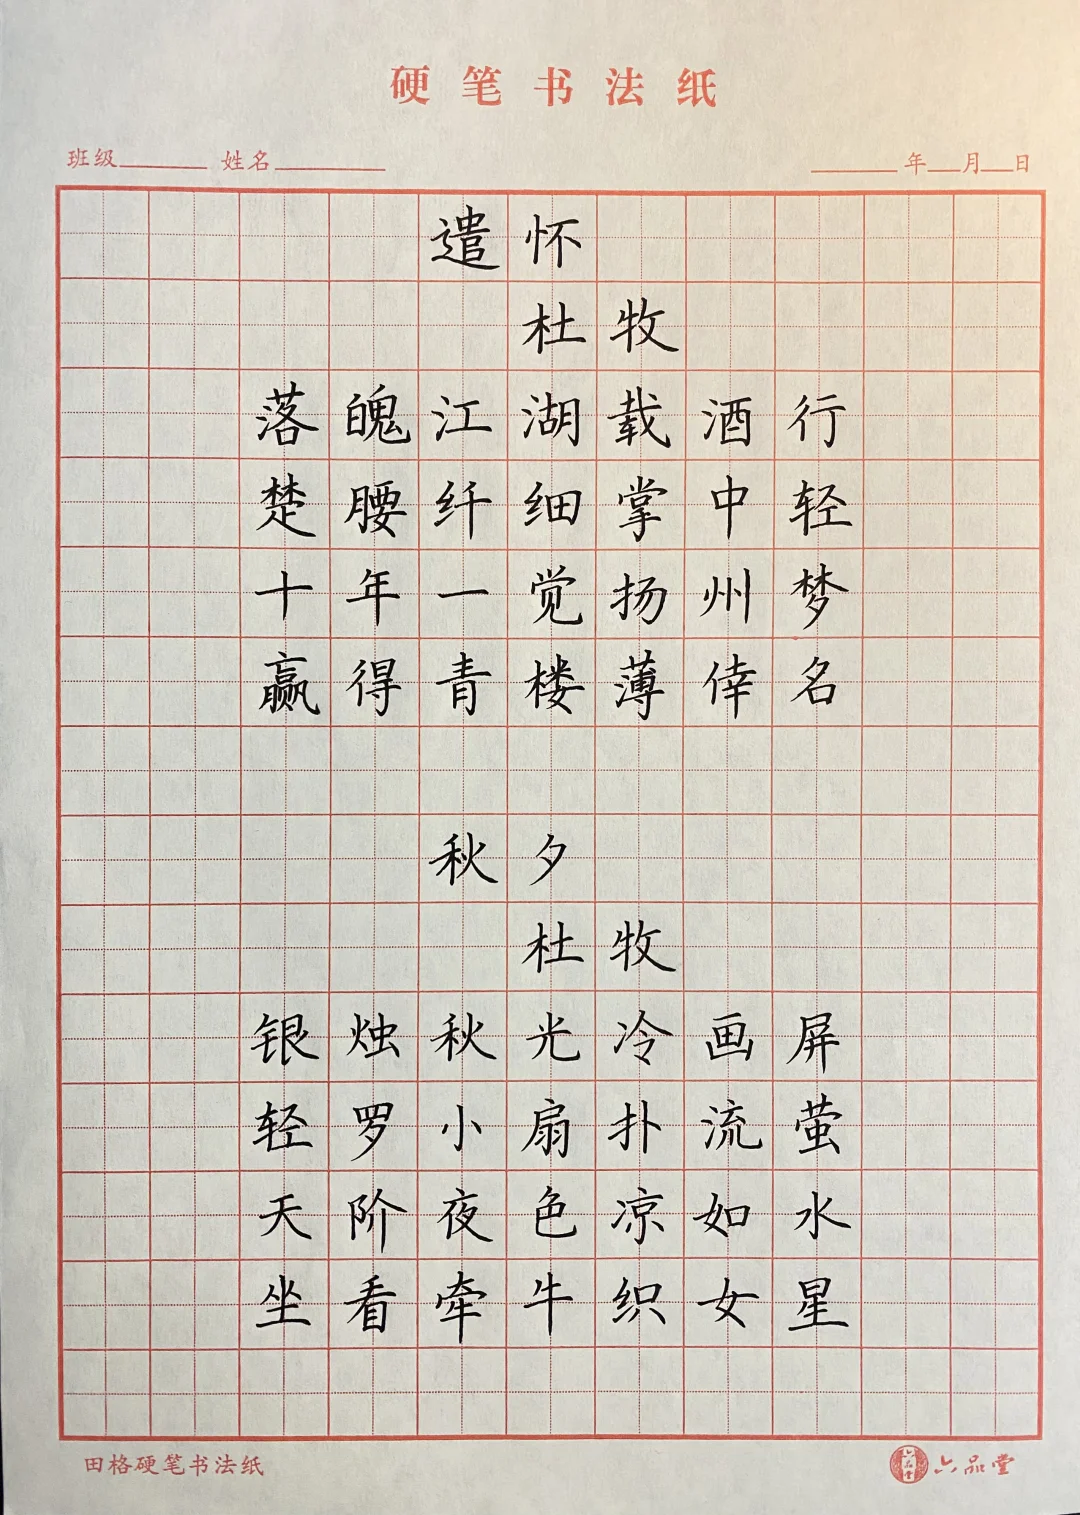 硬笔书法纸
班级 姓名 年 月 日
遣怀
杜牧
落魄江湖载酒行
楚腰纤细掌中轻
十年一觉扬州梦
赢得青楼薄倖名
秋夕
杜牧
银烛秋光冷画屏
轻罗小扇扑流萤
天阶夜色凉如水
坐看牵牛织女星
田格硬笔书法纸
六品堂 六品堂